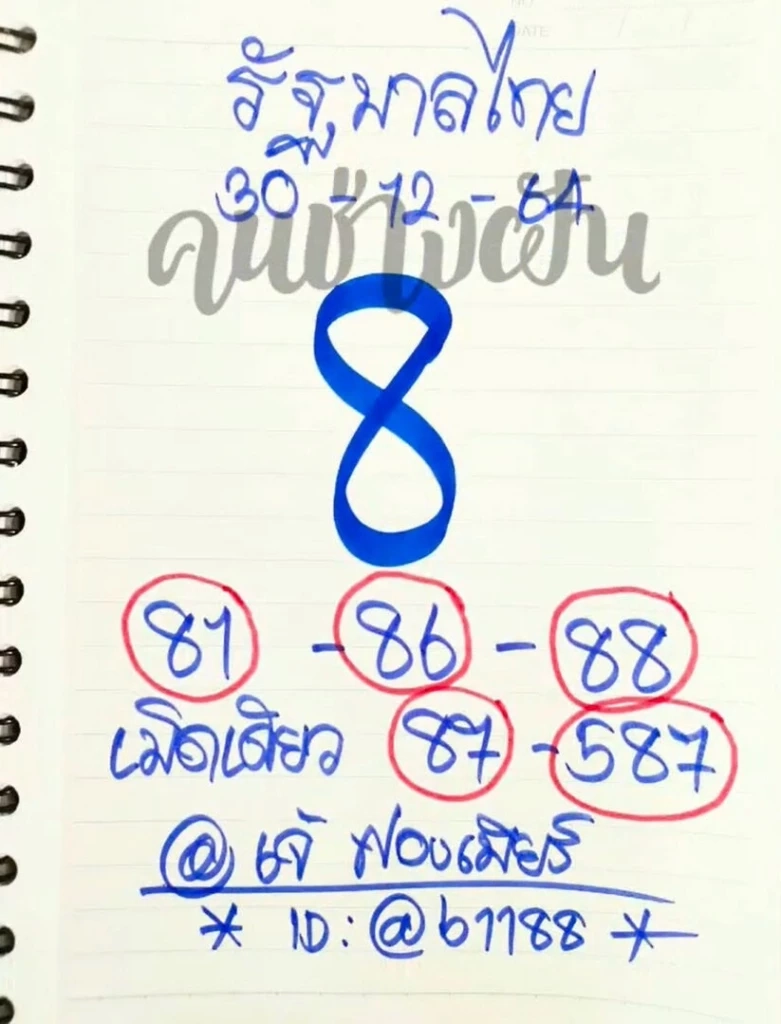 รัฐบาลไทย
30 - 12 - 64
คนช่างฝัน
8
81 - 86 - 88
เม็ดเดียว 87 - 587
@ เจ๊ ฟองเบียร์
* ID: @b1188 *